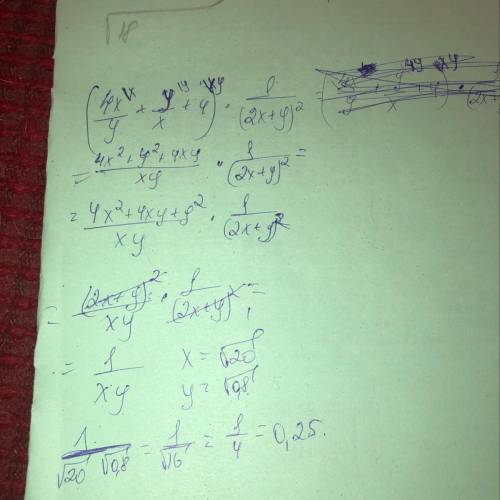 √18
(4x/y + y/x + 4) · 1/(2x+y)² =
= 4x²+y²+4xy/xy · 1/(2x+y)² =
= 4x²+4xy+y²/xy · 1/(2x+y)²
= (2x+y)²/xy · 1/(2x+y)² =
= 1/xy x = √20
y = √0,8
1/√20 √0,8 = 1/√16 = 1/4 = 0,25.